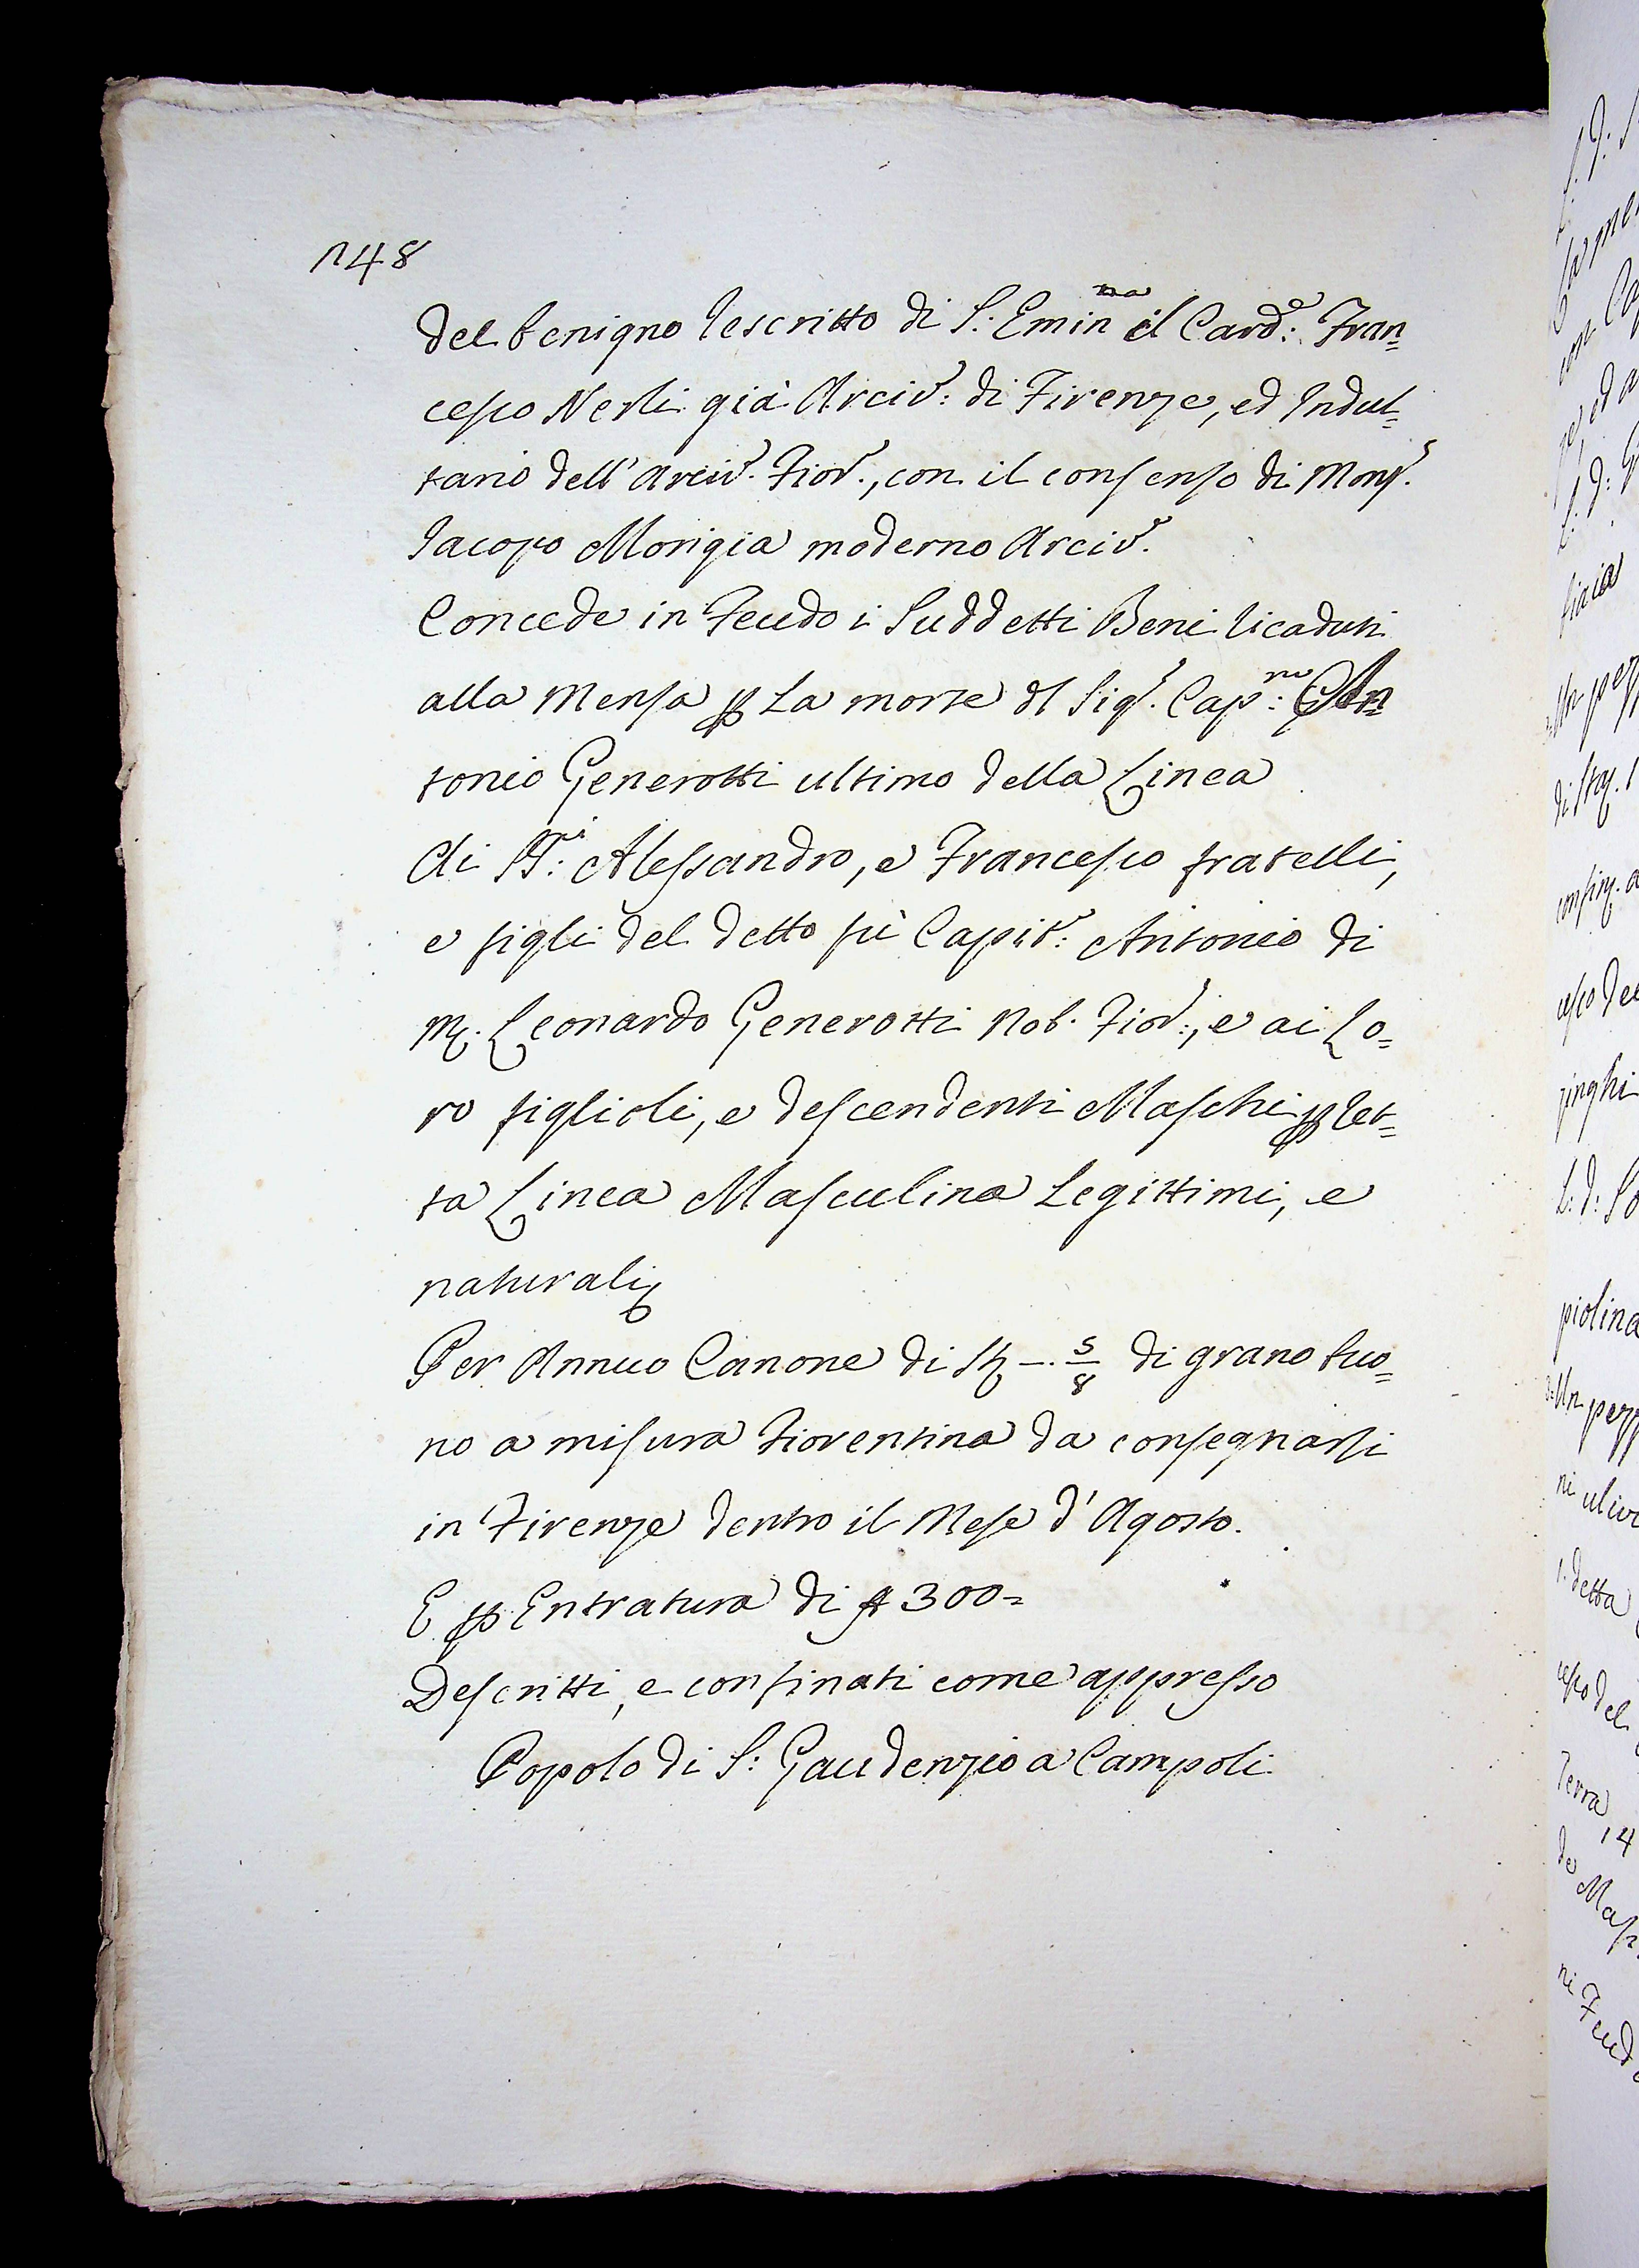 148
del benigno Rescritto di S: Emin.ma il Card.e: Fran=
cesco Nerli già Arciv.o: di Firenze, ed Indul=
tario dell' Arciv.o Fior.o, con il consenso di Mons.r
Jacopo Morigia moderno Arciv.o
Concede in Feudo i Suddetti Beni ricaduti
alla Mensa ꝑ La morte dl Sig.r Cap.no: An=
tonio Generotti ultimo della Linea
Ai SS.ri: Alessandro, e Francesco fratelli,
e figli del detto fù Capit.o: Antonio di
M. Leonardo Generotti Nob. Fior.o:, e ai Lo=
ro figlioli, e descendenti Maschi ꝑ ret=
ta Linea Masculina Legittimi, e
naturali
Per Annuo Canone di St. —. 5/8 di grano buo=
no a misura Fiorentina da consegnarsi
in Firenze dentro il Mese d' Agosto.
E ꝑ Entratura di 300=
Descritti, e confinati come appresso
Popolo di S: Gaudenzio a Campoli